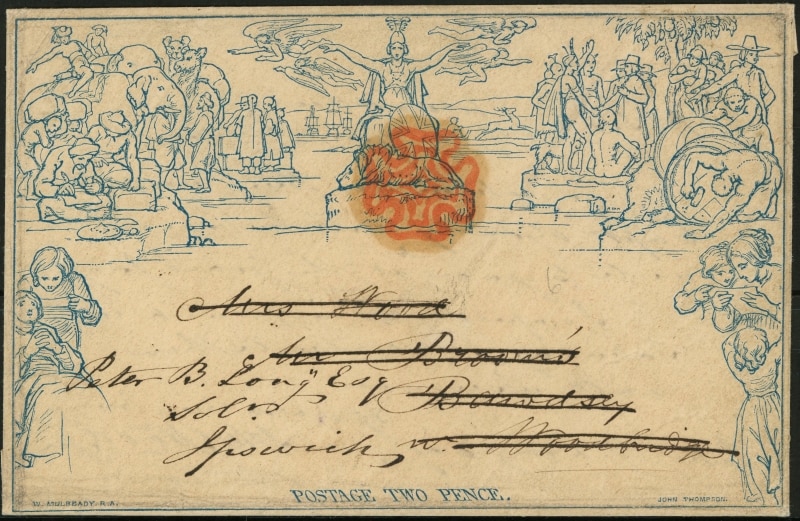 Mrs Wood
Mr Brown's
Peter B. Long Esq Bawdsey
Solr
Ipswich, nr. Woodbridge
POSTAGE TWO PENCE.
W. MULREADY R.A. JOHN THOMPSON